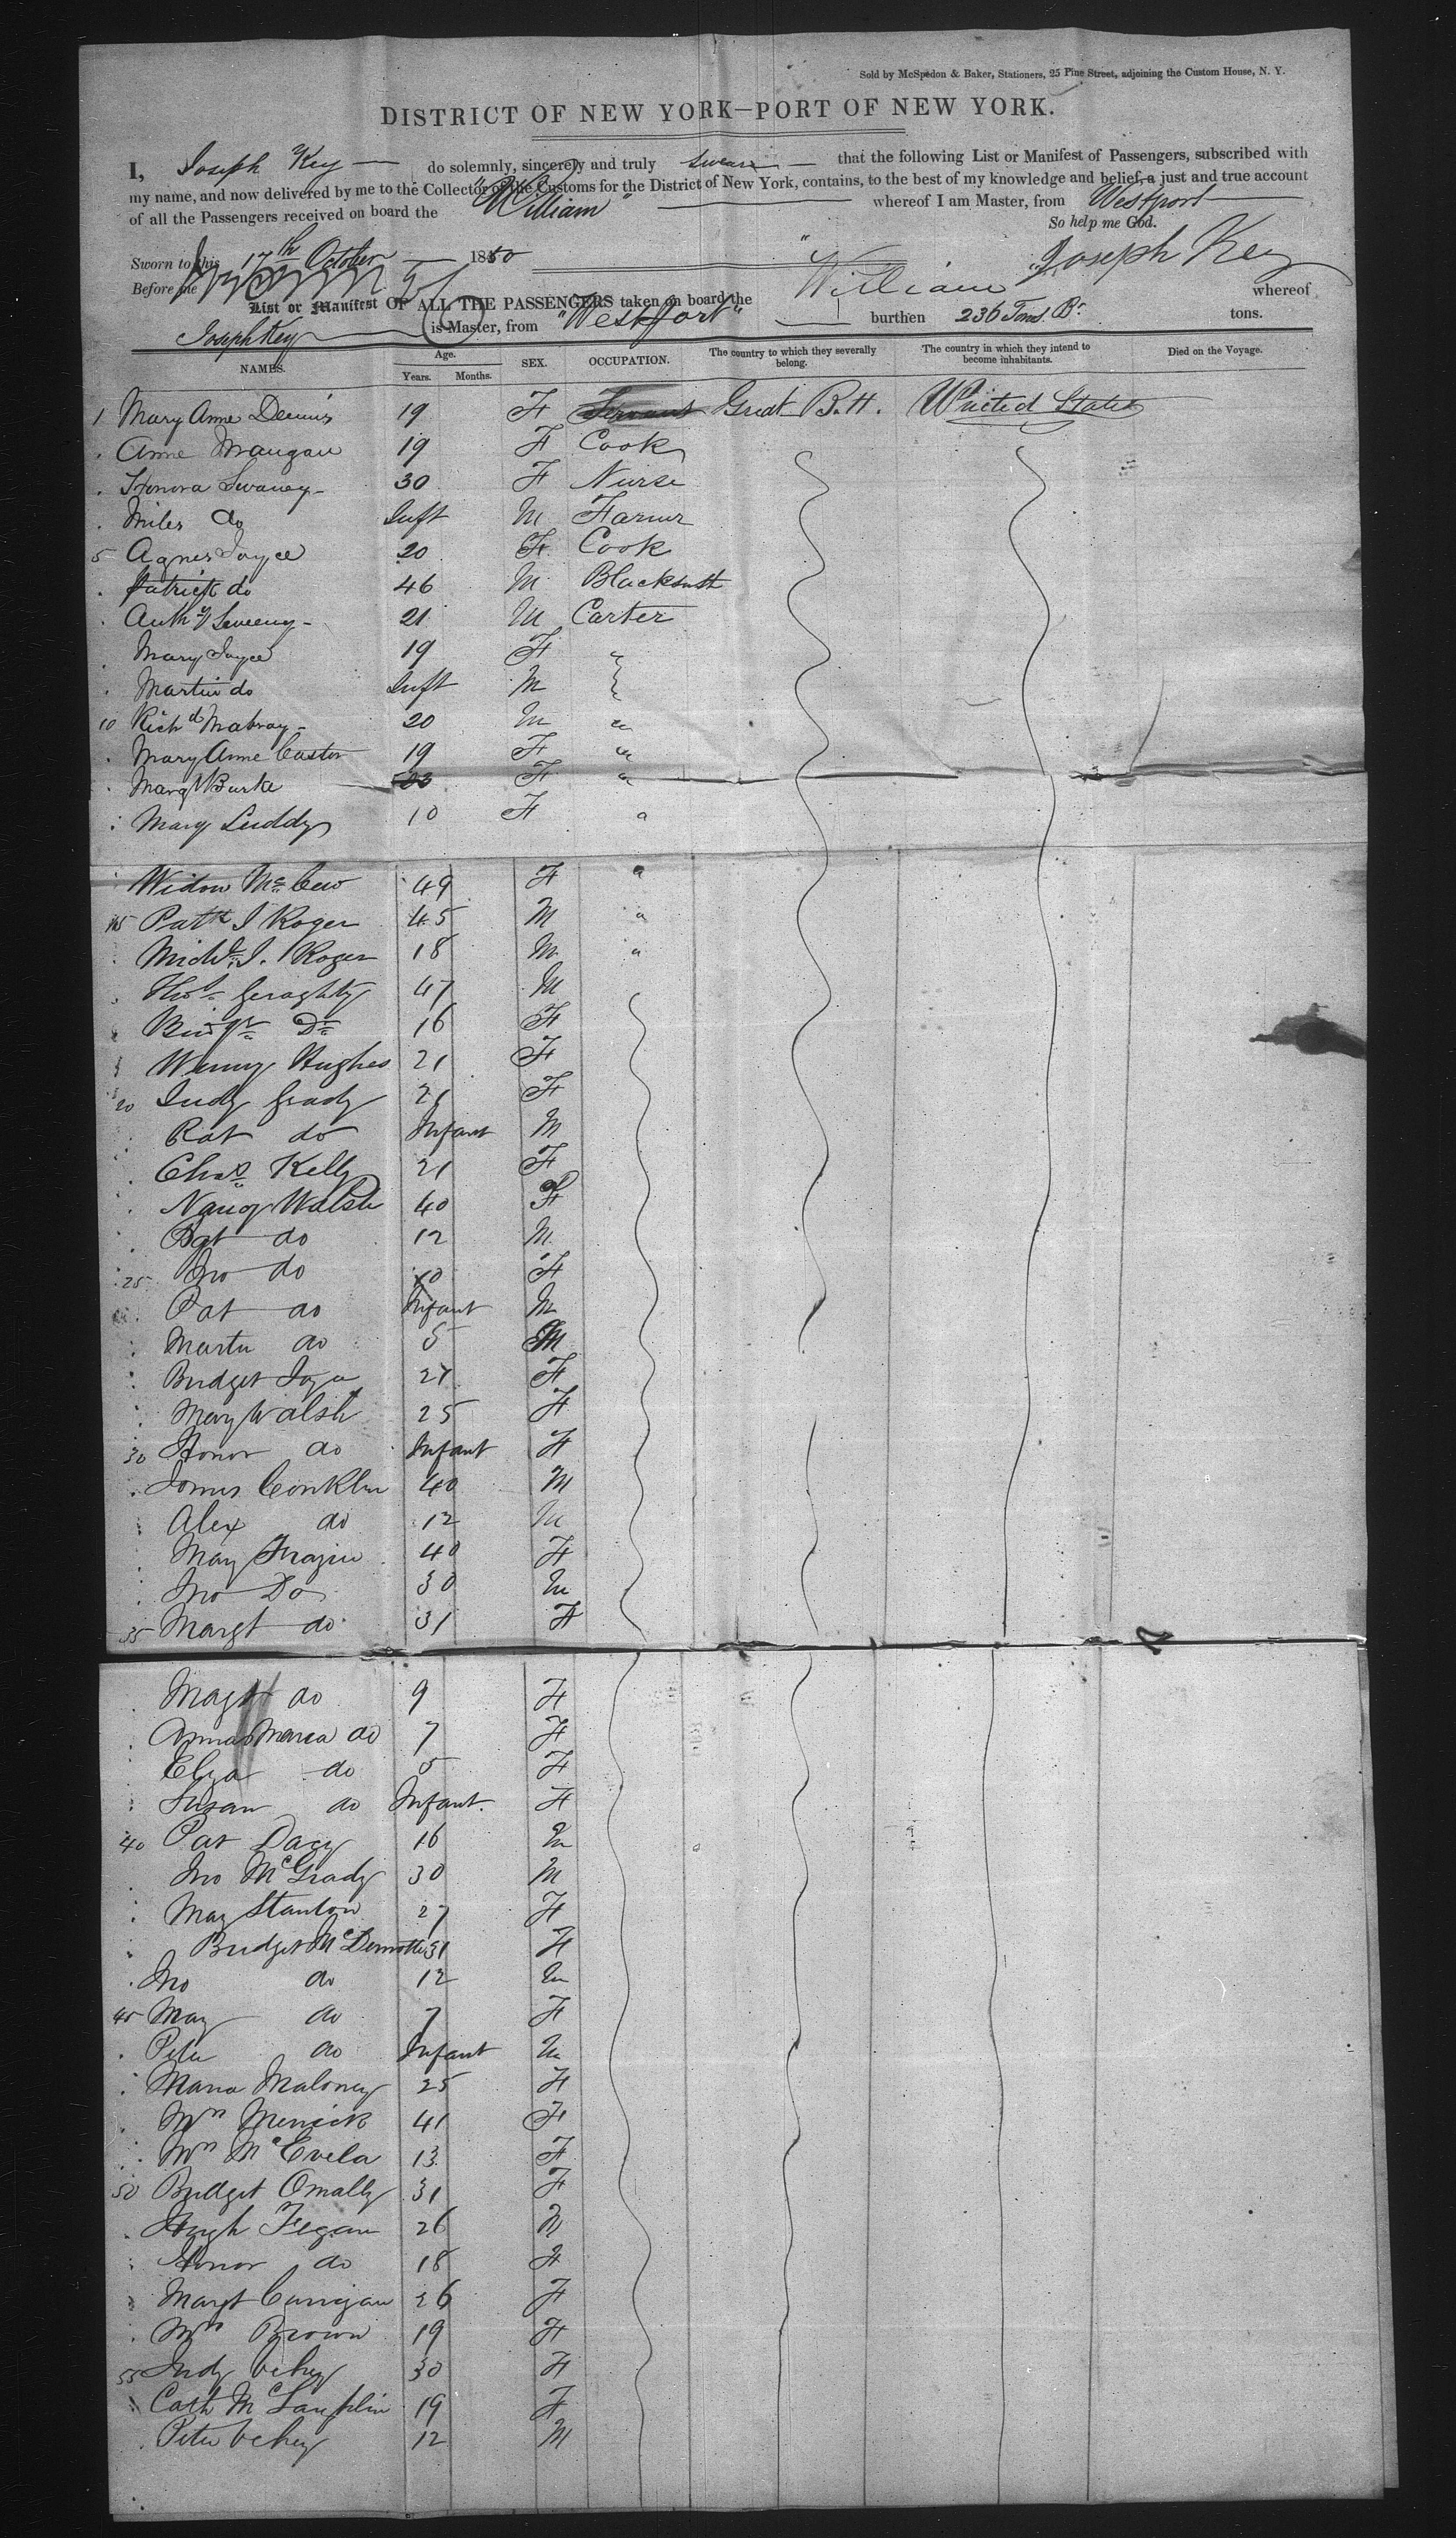 Sold by McSpedon & Baker, Stationers, 25 Pine Street, adjoining the Custom House, N. Y.
DISTRICT OF NEW YORK—PORT OF NEW YORK.
I, Joseph Key do solemnly, sincerely and truly swear that the following List or Manifest of Passengers, subscribed with
my name, and now delivered by me to the Collector of the Customs for the District of New York, contains, to the best of my knowledge and belief, a just and true account
of all the Passengers received on board the "William" whereof I am Master, from Westport
So help me God.
Sworn to this 17th October 1850 Joseph Key
Before me
List or Manifest OF ALL THE PASSENGERS taken on board the "William whereof
Joseph Key is Master, from "Westport" burthen 236 Tons Br. tons.
NAMES. Age. Years. Months. SEX. OCCUPATION. The country to which they severally belong. The country in which they intend to become inhabitants. Died on the Voyage.
1 Mary Anne Dennis 19 F Servant Great Brit. United States
Anne Mangan 19 F Cook
Honora Swaney 30 F Nurse
Miles do Inft M Farmer
5 Agnes Joyce 20 F Cook
Patrick do 46 M Blacksmith
Anthy Sweeny 21 M Carter
Mary Joyce 19 F "
Martin do Inft M "
10 Richd Mabray 20 M "
Mary Anne Caston 19 F "
Margt Burke F "
Mary Luddy 10 F "
Widow Mc 49 F "
15 Patk J Roger 45 M "
Michl J. Roger 18 M "
Thos Geraghty 47 M
Do 16 F
Winny Hughes 21 F
20 Judy Grady 21 F
Pat do Infant M
Chas Kelly 21 F
Nancy Walsh 40 F
Pat do 12 M
25 Jno do 10 F
Pat do Infant M
Martn do 5 M
Bridget Joyce 27 F
Mary Walsh 25 F
30 Honor do Infant F
James Conklin 40 M
Alex do 12 M
May 40 F
Jno Do 30 M
35 Margt do 31 F
Magt do 9 F
Anna Maria do 7 F
Eliza do 5 F
Susan do Infant. F
40 Pat Dacy 16 M
Jno McGrady 30 M
May Stanton 27 F
Bridget McDermott 31 F
Jno do 12 M
45 May do 7 F
Peter do Infant M
Maria Maloney 25 F
Wm Merrick 41 F
Wm McEvela 13 F
50 Bridget Omally 31 F
Hugh Fegan 26 M
Honor do 18 F
Margt Carrigan 26 F
Brown 19 F
55 Judy 30 F
Cath McLauflin 19 F
Peter 12 M